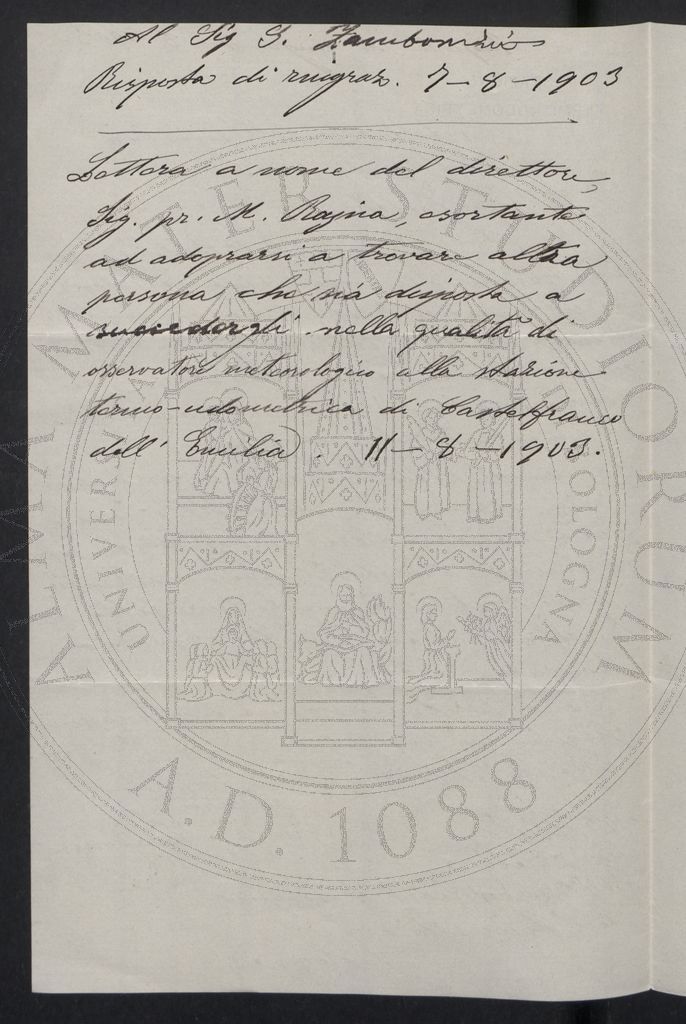 Al Sig G. Zambonini
Risposta di ringraz. 7-8-1903
Lettera a nome del direttore,
Sig. pr. M. Rajna, esortante
ad adoprarsi a trovare altra
persona che sia disposta a
succedergli nella qualità di
osservatore meteorologico alla stazione
termo-udometrica di Castelfranco
dell' Emilia. 11-8-1903.
ALMA MATER STUDIORUM
UNIVERS BOLOGNA
A.D. 1088